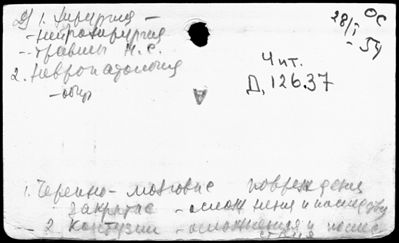 1. Хирургия —
- нейрохирургия
- травмы Н.С.
2. Невропатология
- общ
28/I ОС
- 54
Чит.
Д, 126.37
1. Черепно-мозговые повреждения
закрытые - осложнения и последс
2. Контузии - осложнения и послед